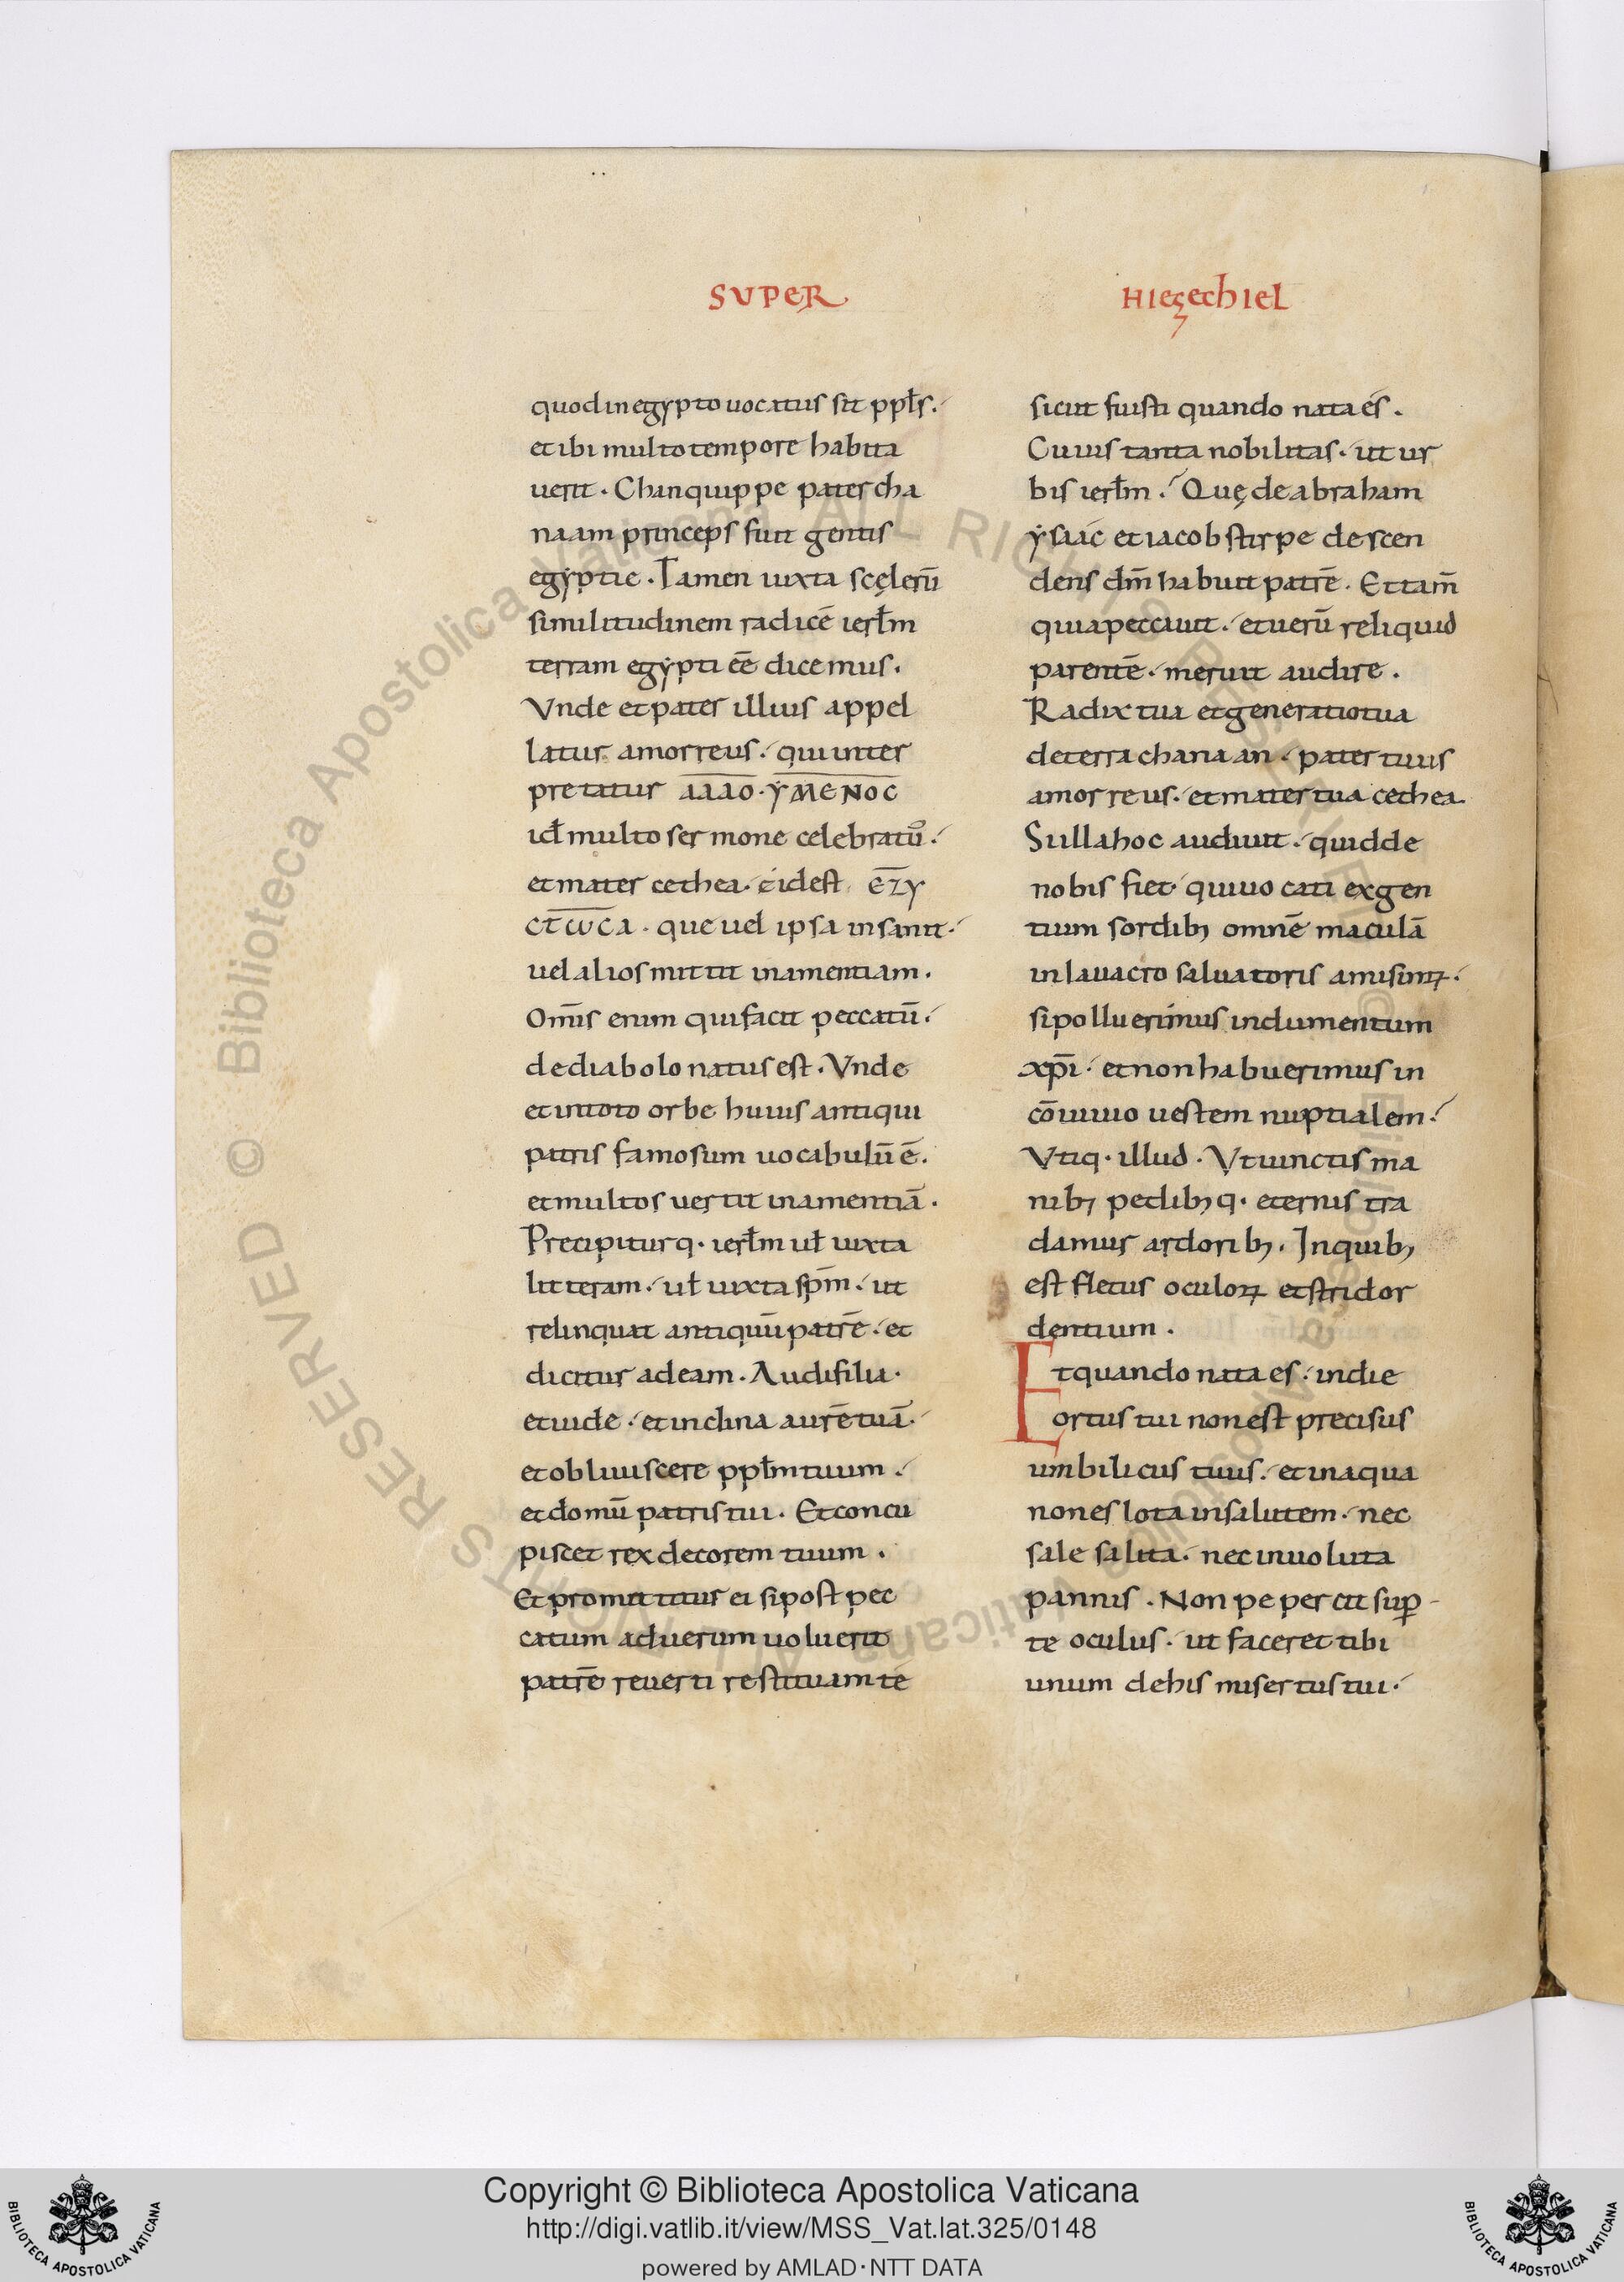 SUPER
HIEZECHIEL
quod in egypto uocatus sit ppłs.
et ibi multo tempore habita
uerit. Chan quippe pater cha
naam princeps fuit gentis
egyptie. Tamen iuxta scęlerū
similitudinem radicē ierłm
terram egypti eē dicemus.
Vnde et pater illius appel
latur amorreus. qui inter
pretatur ΑΛΛΟ·ΥΜΕΝΟC
id multo sermone celebratū.
et mater cethea. idest ΕΖΥ
CΤѠCΑ. que uel ipsa insanit.
uel alios mittit inamentiam.
Om̄is enim qui facit peccatū.
de diabolo natus est. Vnde
et in toto orbe huius antiqui
patris famosum uocabulū ē.
et multos uertit inamentiā.
Precipitur q. ierłm uł iuxta
litteram. uł iuxta sp̄m. ut
relinquat antiquū patrē. et
dicitur ad eam. Audi filia.
et uide. et inclina aurē tuā.
et obliuiscere ppłm tuum.
et domū patris tui. Et concu
piscet rex decorem tuum.
Et promittitur ei si post pec
catum ad uerum uoluerit
patrē reuerti restituam te
sicut fuisti quando nata és.
Cuius tanta nobilitas. ut ur
bis ierłm. Quę de abraham
ysáác et iacob stirpe descen
dens dm̄ habuit patrē. Et tam̄
quia peccauit. et uerū reliquid
parentē. meruit audire.
Radix tua et generatio tua
de terra chanaan. pater tuus
amorreus. et mater tua cethea
Si illa hoc audiuit. quid de
nobis fiet. qui uocati ex gen
tium sordibꝫ omnē maculā
in lauacro saluatoris amisimꝰ.
si polluerimus indumentum
xp̄i. et non habuerimus in
cōuiuio uestem nuptialem.
Vtiq. illud. Vt uinctis ma
nibꝫ pedibꝫq. eternis tra
damur ardoribꝫ. In quibꝫ
est fletus oculoꝝ et stridor
dentium.
Et quando nata es. in die
ortus tui non est precisus
umbilicus tuus. et in aqua
non es lota in salutem. nec
sale salita. nec inuoluta
pannis. Non pepercit suꝑ
te oculus. ut faceret tibi
unum de his misertus tui.
© Biblioteca Apostolica Vaticana ALL RIGHTS RESERVED
© Biblioteca Apostolica Vaticana ALL RIGHTS RESERVED
Copyright © Biblioteca Apostolica Vaticana
http://digi.vatlib.it/view/MSS_Vat.lat.325/0148
powered by AMLAD·NTT DATA
BIBLIOTECA APOSTOLICA VATICANA
BIBLIOTECA APOSTOLICA VATICANA